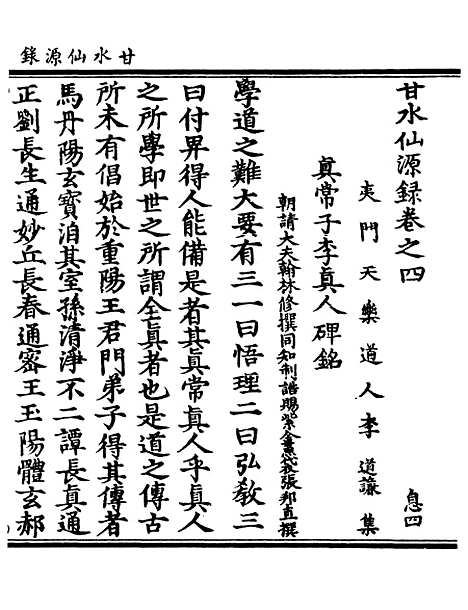 甘水仙源錄
甘水仙源録卷之四 息四
夷門天樂道人李道謙集
真常子李真人碑銘
朝請大夫翰林修撰同知制誥賜紫金魚袋張邦直撰
學道之難大要有三一曰悟理二曰弘教三
曰付畀得人能備是者其真常真人乎真人
之所學即世之所謂全真者也是道之傳古
所未有倡始於重陽王君門弟子得其傳者
馬丹陽玄寶洎其室孫清淨不二譚長真通
正劉長生通妙丘長春通密王玉陽體玄郝